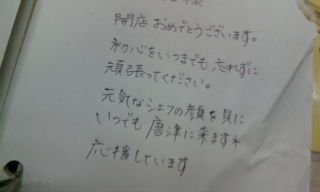 様
開店おめでとうございます。
初心をいつまでも忘れずに
頑張ってください。
元気なシェフの顔を見に
いつでも唐津に来ますネ
応援しています